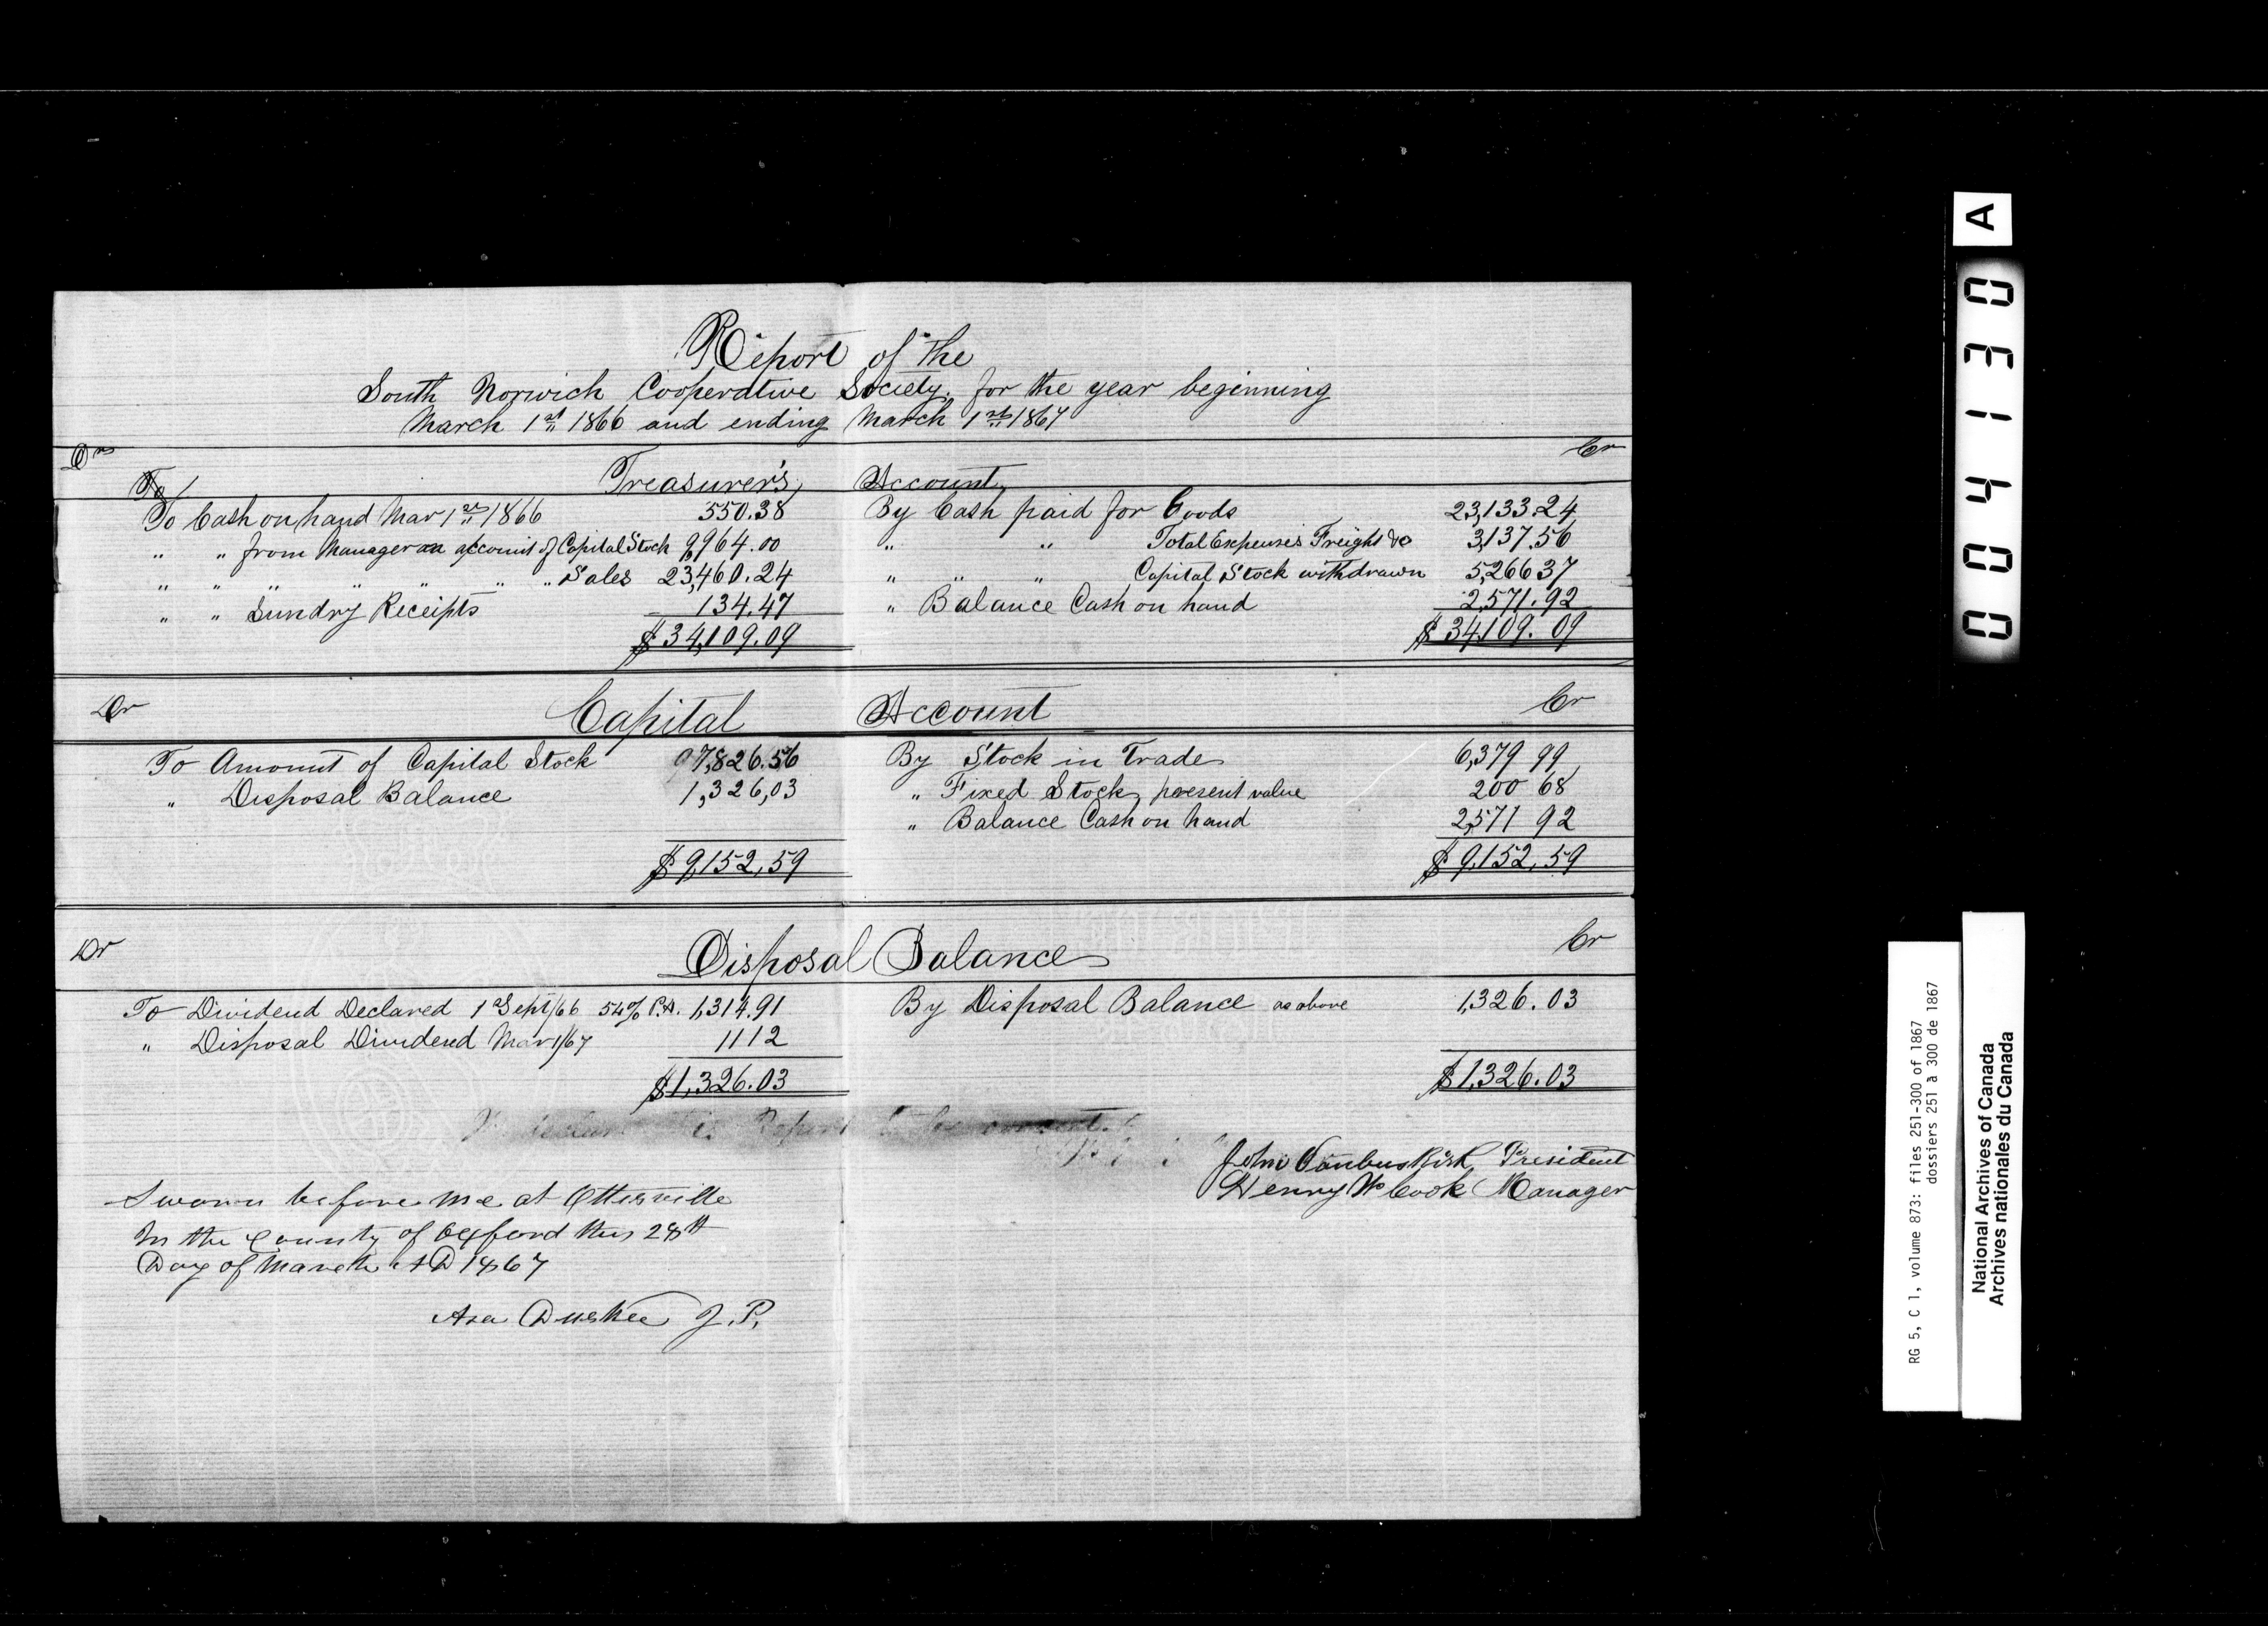 Report of the
South Norwich Cooperative Society, for the year beginning
March 1st 1866 and ending March 1st 1867
Dr Cr
Treasurer's Account
To
To Cash on hand Mar 1st 1866 550.38 By Cash paid for Goods 23,133.24
" " from Manager on account of Capital Stock 9,964.00 " " Total Expenses Freight &c 3,137.56
" " " " " " " Sales 23,460.24 " " " Capital Stock withdrawn 5,266 37
" " Sundry Receipts 134.47 " Balance Cash on hand 2,571.92
$34,109.09 $34,109.09
Dr Capital Account Cr
To Amount of Capital Stock 7,826.56 By Stock in Trade 6,379 99
" Disposal Balance 1,326,03 " Fixed Stock, present value 200 68
" Balance Cash on hand 2,571 92
$9,152,59 $9,152,59
Dr Disposal Balance Cr
To Dividend Declared 1st Sept/66 54% P.A. 1,314.91 By Disposal Balance as above 1,326.03
" Disposal Dividend Mar 1/67 11 12
$1,326.03 $1,326.03
Report to be correct.
John Vanbuskirk President
Henry W Cook Manager
Sworn before me at Otterville
In the County of Oxford this 28th
Day of March AD 1867
Asa Durkee J.P.
0 0 4 1 3 0 A
RG 5, C 1, volume 873: files 251-300 of 1867
dossiers 251 à 300 de 1867
National Archives of Canada
Archives nationales du Canada